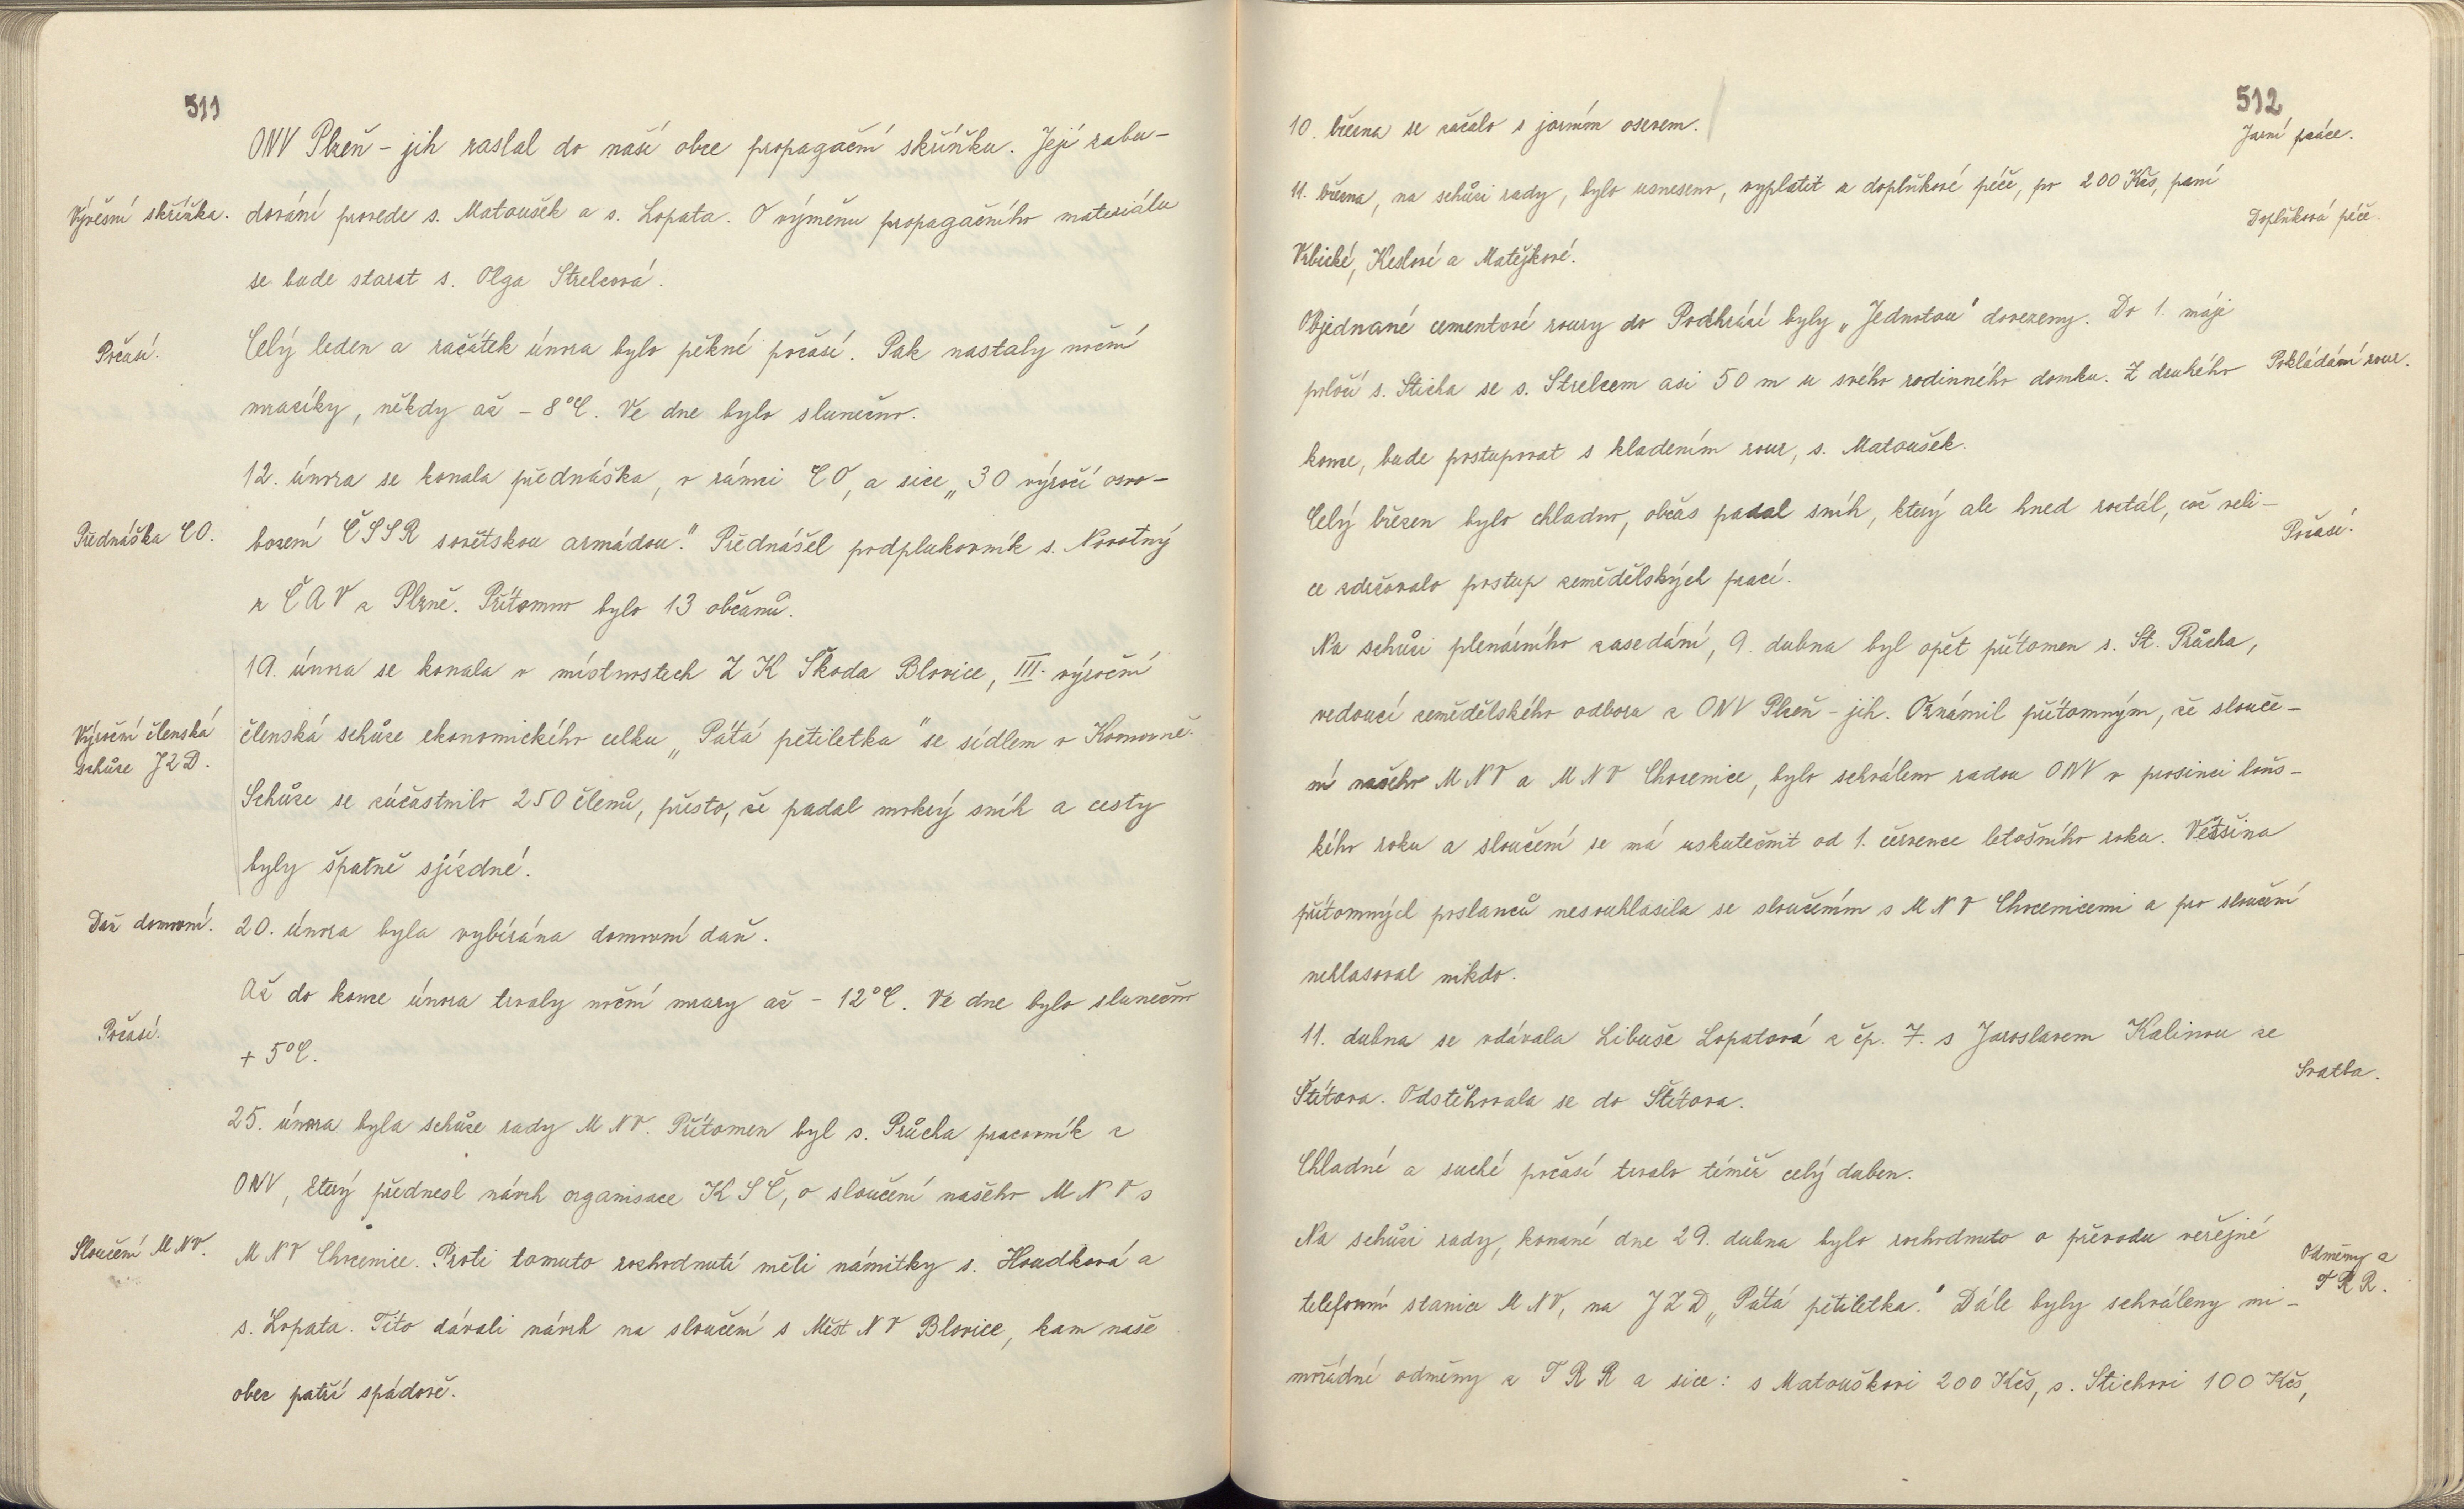 511
ONV Plzeň - jih zaslal do naší obce propagační skříňku. Její zabu-
Vývěsní skříňka.
dování provede s. Matoušek a s. Lopata. O výměnu propagačního materiálu
se bude starat s. Olga Strelcová.
Počasí.
Celý leden a začátek února bylo pěkné počasí. Pak nastaly noční
mrazíky, někdy až - 8°C. Ve dne bylo slunečno.
12. února se konala přednáška, v rámci CO, a sice „30 výročí osvo-
Přednáška CO.
bození ČSSR sovětskou armádou." Přednášel podplukovník s. Novotný
z ČAV z Plzně. Přítomno bylo 13 občanů.
19. února se konala v místnostech ZK Škoda Blovice, III. výroční
Výroční členská
schůze JZD.
členská schůze ekonomického celku „Pátá pětiletka" se sídlem v Komorně.
Schůze se zúčastnilo 250 členů, přesto, že padal mokrý sníh a cesty
byly špatně sjízdné.
Daň domovní.
20. února byla vybírána domovní daň.
Až do konce února trvaly noční mrazy až - 12°C. Ve dne bylo slunečno
Počasí.
+ 5°C.
25. února byla schůze rady MNV. Přítomen byl s. Průcha pracovník z
ONV, který přednesl návrh organisace KSČ, o sloučení našeho MNV s
Sloučení MNV.
MNV Chocenice. Proti tomuto rozhodnutí měli námitky s. Houdková a
s. Lopata. Tito dávali návrh na sloučení s Měst NV Blovice, kam naše
obec patří spádově.
512
10. března se začalo s jarním osevem.
Jarní práce.
11. března, na schůzi rady, bylo usneseno, vyplatit z doplňkové péče, po 200 Kčs, paní
Doplňková péče.
Vrbické, Keslové a Matějkové.
Objednané cementové roury do Podhrází byly „Jednotou" dovezeny. Do 1. máje
položí s. Sticha se s. Strelcem asi 50 m u svého rodinného domku. Z druhého
Pokládání rour.
konce, bude postupovat s kladením rour, s. Matoušek.
Celý březen bylo chladno, občas padal sníh, který ale hned roztál, což veli-
Počasí.
ce zdržovalo postup zemědělských prací.
Na schůzi plenárního zasedání, 9. dubna byl opět přítomen s. St. Průcha,
vedoucí zemědělského odboru z ONV Plzeň - jih. Oznámil přítomným, že slouče-
ní našeho MNV a MNV Chocenice, bylo schváleno radou ONV v prosinci loňs-
kého roku a sloučení se má uskutečnit od 1. července letošního roku. Většina
přítomných poslanců nesouhlasila se sloučením s MNV Chocenicemi a pro sloučení
nehlasoval nikdo.
11. dubna se vdávala Libuše Lopatová z čp. 7. s Jaroslavem Kalinou ze
Svatba.
Štítova. Odstěhovala se do Štítova.
Chladné a suché počasí trvalo téměř celý duben.
Na schůzi rady, konané dne 29. dubna bylo rozhodnuto o převodu veřejné
Odměny z
FRR.
telefonní stanice MNV, na JZD „Pátá pětiletka." Dále byly schváleny mi-
mořádné odměny z FRR a sice: s Matouškovi 200 Kčs, s. Stichovi 100 Kčs,